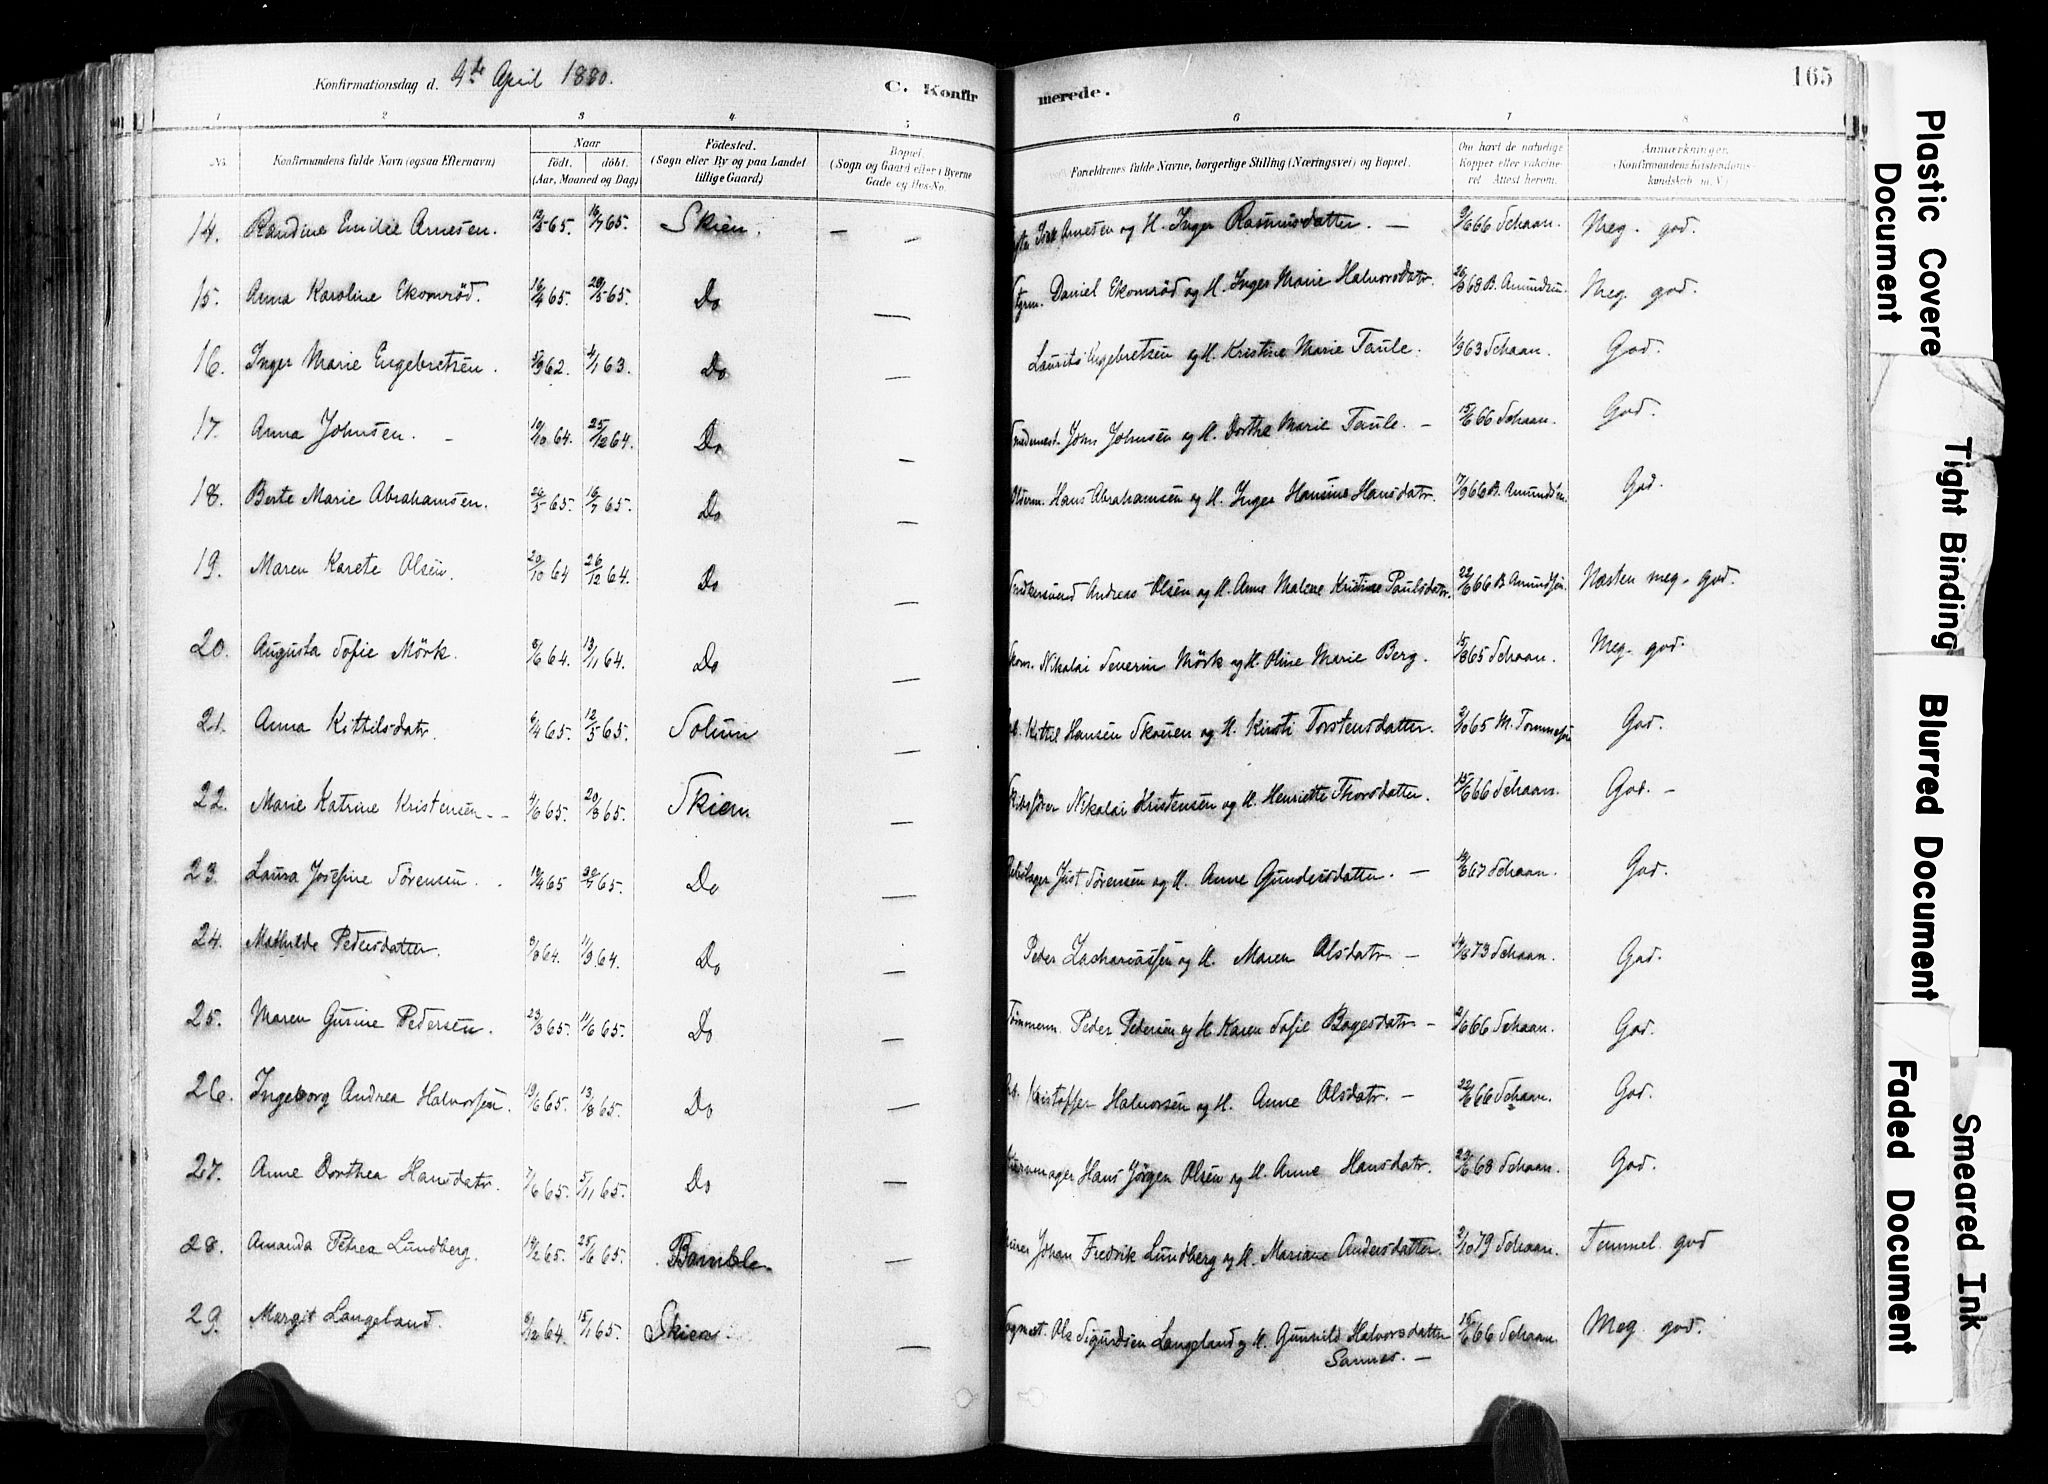 Konfirmationsdag d. 4de April 1880.
C. Konfirmerede.
165
1 2 3 4 5 6 7 8
No.
Konfirmandens fulde Navn (ogsaa Efternavn)
Naar
födt. döbt.
(Aar, Maaned og Dag)
Födested.
(Sogn eller By og paa Landet
tillige Gaard)
Bopæl.
(Sogn og Gaard eller i Byerne
Gade og Hus-No.
Forældrenes fulde Navne, borgerlige Stilling (Næringsvei) og Bopæl.
Om havt de naturlige
Kopper eller vaksine-
ret Attest herom.
Anmærkninger.
(Konfirmandens Kristendoms-
kundskab m. V.)
14. Emilie Arnesen. 65. 16/7 65. Skien. — Arnesen og H. Inger Rasmusdatter. — 9/6 66 Schaan. Meg. god.
15. Anna Karoline Ekomröd. 16/4 65. 28/5 65. Do — Daniel Ekomröd og H. Inger Marie Halvorsdatr. 68 B. Amundsen. Meg. god.
16. Inger Marie Engebretsen. 62. 4/1 63. Do — Laurits Engebretsen og H. Kristine Marie Taule. 63 Schaan. God.
17. Anna Johnsen. — 19/10 64. 25/12 64. Do — John Johnsen og H. Dorthe Marie Taule. — 15/6 66 Schaan. God.
18. Berte Marie Abrahamsen. 26/5 65. 16/7 65. Do — Hans Abrahamsen og H. Inger Hansine Hansdatr. 17/9 66 B. Amundsen. God.
19. Maren Karete Olsen. 20/10 64 26/12 64. Do — Andreas Olsen og H. Anne Malene Kristine Paulsdatr. 22/6 66 B. Amundsen. Næsten meg. god.
20. Augusta Sofie Mörk. 64. 13/11 64. Do — Nikolai Severin Mörk og H. Oline Marie Berg. 15/8 65 Schaan. Meg. god.
21. Anna Kittilsdatr. 65. 12/5 65. Solum — Kittil Hansen Skauen og H. Kirsti Torstensdatter. 65 M. Tommesen God.
22. Marie Katrine Kristensen — 65. 20/8 65. Skien — Nikolai Kristensen og H. Henriette Thorsdatter. 15/6 66 Schaan. God. —
23. Laura Josefine Sörensen. 65 65. Do — Just Sörensen og H. Anne Gundersdatter. — 67 Schaan. God.
24. Mathilde Pedersdatter. 64. 11/9 64. Do — Peder Zachariassen og H. Maren Olsdatr — 73 Schaan. God.
25. Maren Gurine Pedersen. 23/3 65. 11/6 65. Do — Tömmerm. Peder Pedersen og H. Karen Sofie Bogesdatr — 66 Schaan. God.
26. Ingeborg Andrea Halvorsen. 19/6 65. 13/8 65. Do — Kristoffer Halvorsen og H. Anne Olsdatr. — 22/6 66 Schaan. God.
27. Anne Dorthea Hansdatr. 7/6 65. 5/11 65. Do — Hans Jörgen Olsen og H. Anne Hansdatr. 68 Schaan. God.
28. Amanda Petrea Lundberg. 65. 25/6 65. Bamble — Johan Fredrik Lundberg og H. Mariane Andersdatter. 2/10 79 Schaan. Temmel. god
29. Margit Langeland. 64. 15/1 65. Skien — Ole Sigurdsen Langeland og H. Gunnild Halvorsdatter 15/6 66 Schaan. Meg god.
Sannes. —
Plastic Covere
Document
Tight Binding
Blurred Document
Faded Document
Smeared Ink